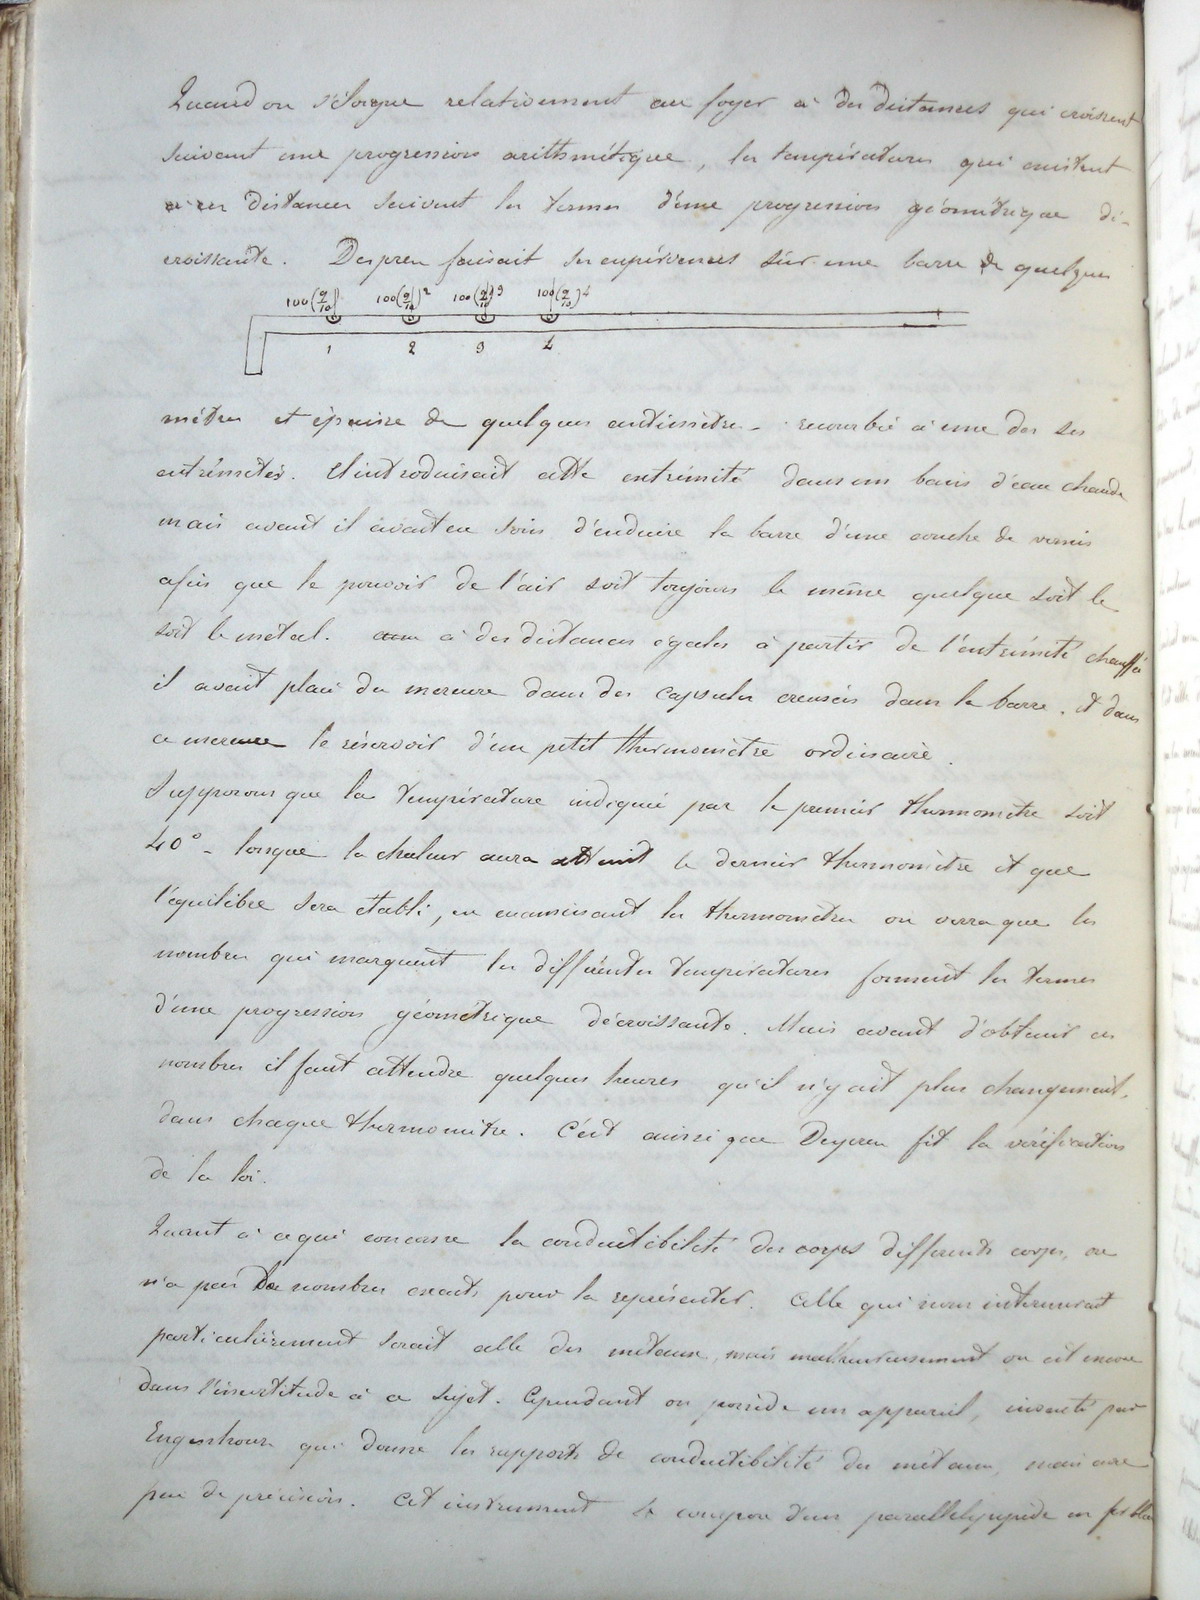 Quand on s'éloigne relativement au foyer à des distances qui croissent
suivant une progression arithmétique, les températures qui existent
à ces distances suivent les termes d'une progression géométrique dé-
croissante. Desprez faisait ses expériences sur une barre de quelques
100(9/10) 100(9/10)² 100(9/10)³ 100(9/10)4
1 2 3 4
mètres et épaisse de quelques centimètre - recourbée à une des ses
extrémités. Il introduisait cette extrémité dans un bain d'eau chaude
mais avant il avait eu soin d'enduire la barre d'une couche de vernis
afin que le pouvoir de l'air soit toujours le même quelque soit le
soit le métal. à des distances égales à partir de l'extrémité chauffée
il avait placé du mercure dans des capsules creusées dans la barre. et dans
ce mercure le réservoir d'un petit thermomètre ordinaire.
Supposons que la température indiquée par le premier thermomètre soit
40° - lorsque la chaleur aura atteint le dernier thermomètre et que
l'équilibre sera établi, en examinant les thermomètres on verra que les
nombres qui marquent les différentes températures forment les termes
d'une progression géométrique décroissante. Mais avant d'obtenir ces
nombres il faut attendre quelques heures qu'il n'y ait plus changement,
dans chaque thermomètre. C'est ainsi que Desprez fit la vérification
de la loi.
Quant à ce qui concerne la conductibilité des corps différents corps, on
n'a pas de nombres exacts pour la représenter. Celle qui nous intéresserait
particulièrement serait celle des métaux, mais malheureusement on est encore
dans l'incertitude à ce sujet. Cependant on possède un appareil, inventé par
Engenhouz qui donne les rapports de conductibilité des métaux, mais avec
peu de précision. Cet instrument se compose d'un parallélipipède en fer blanc